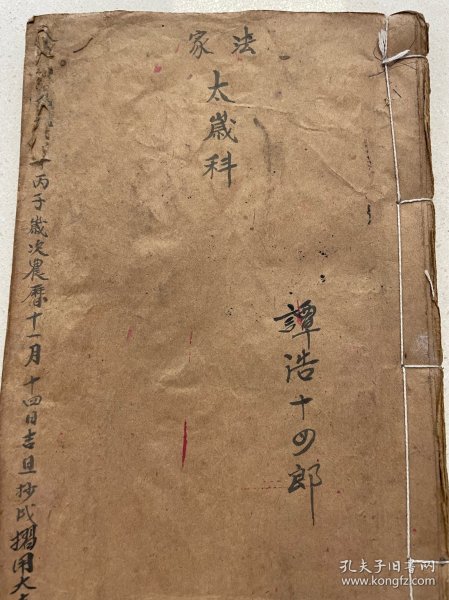 法家
太嵗科
譚浩十四郎
丙子嵗次農曆十一月十四日吉旦抄成摺用大吉
孔夫子旧书网
www.kongfz.com